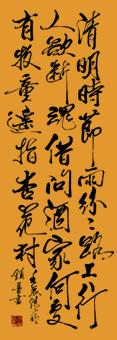 清明時節雨紛〻路上行
人欲斷魂借問酒家何處
有牧童遙指杏花村